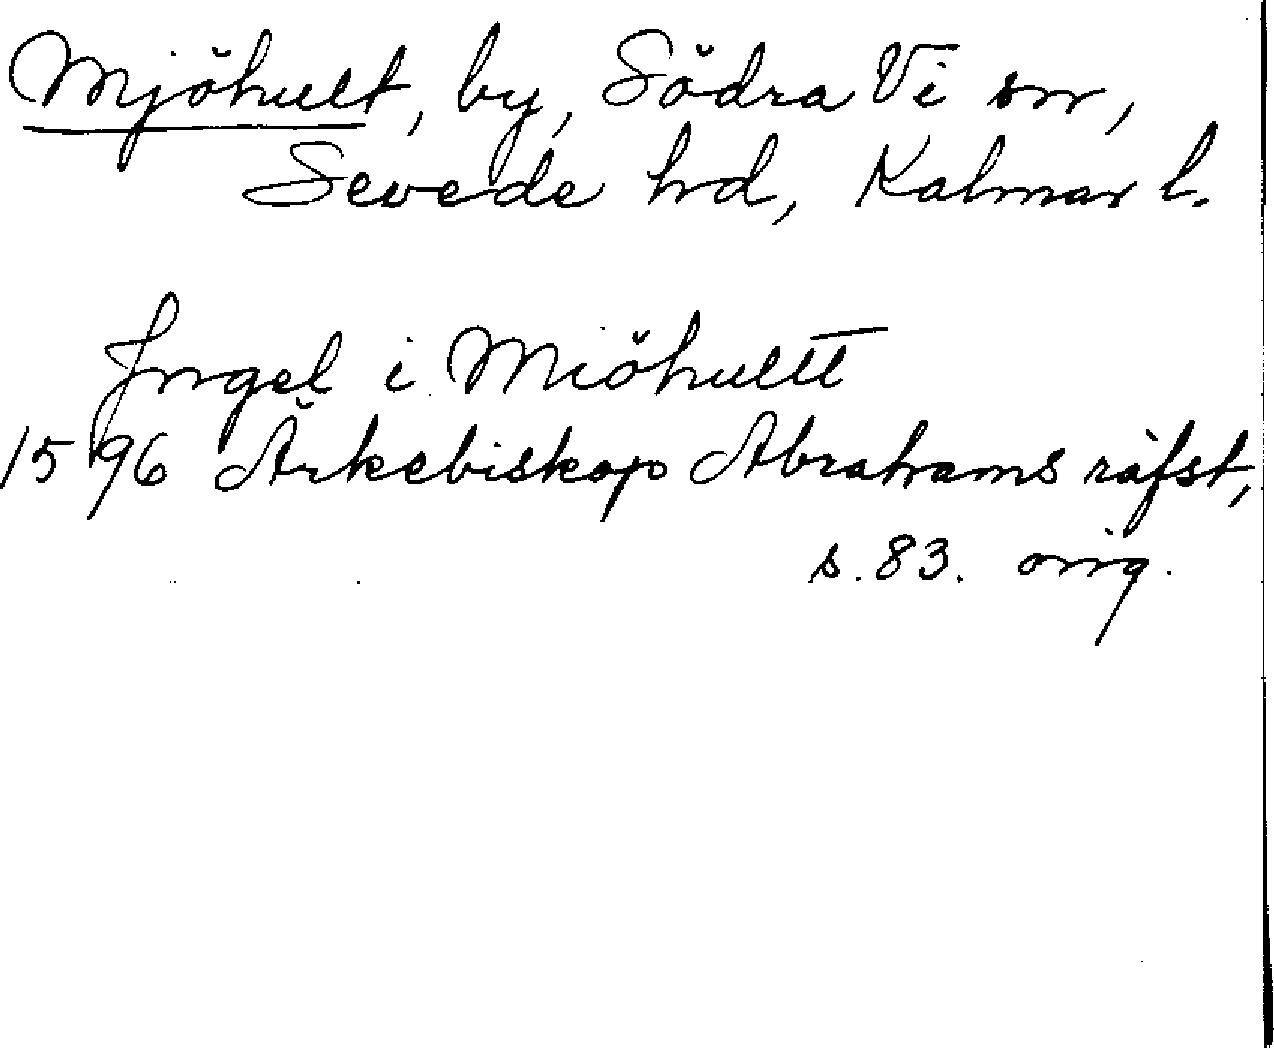 Mjöhult, by, Södra Vi sn,
Sevede hd, Kalmar l.
Jngel i Miöhultt
1596 Ärkebiskop Abrahams räfst,
s. 83. orig.